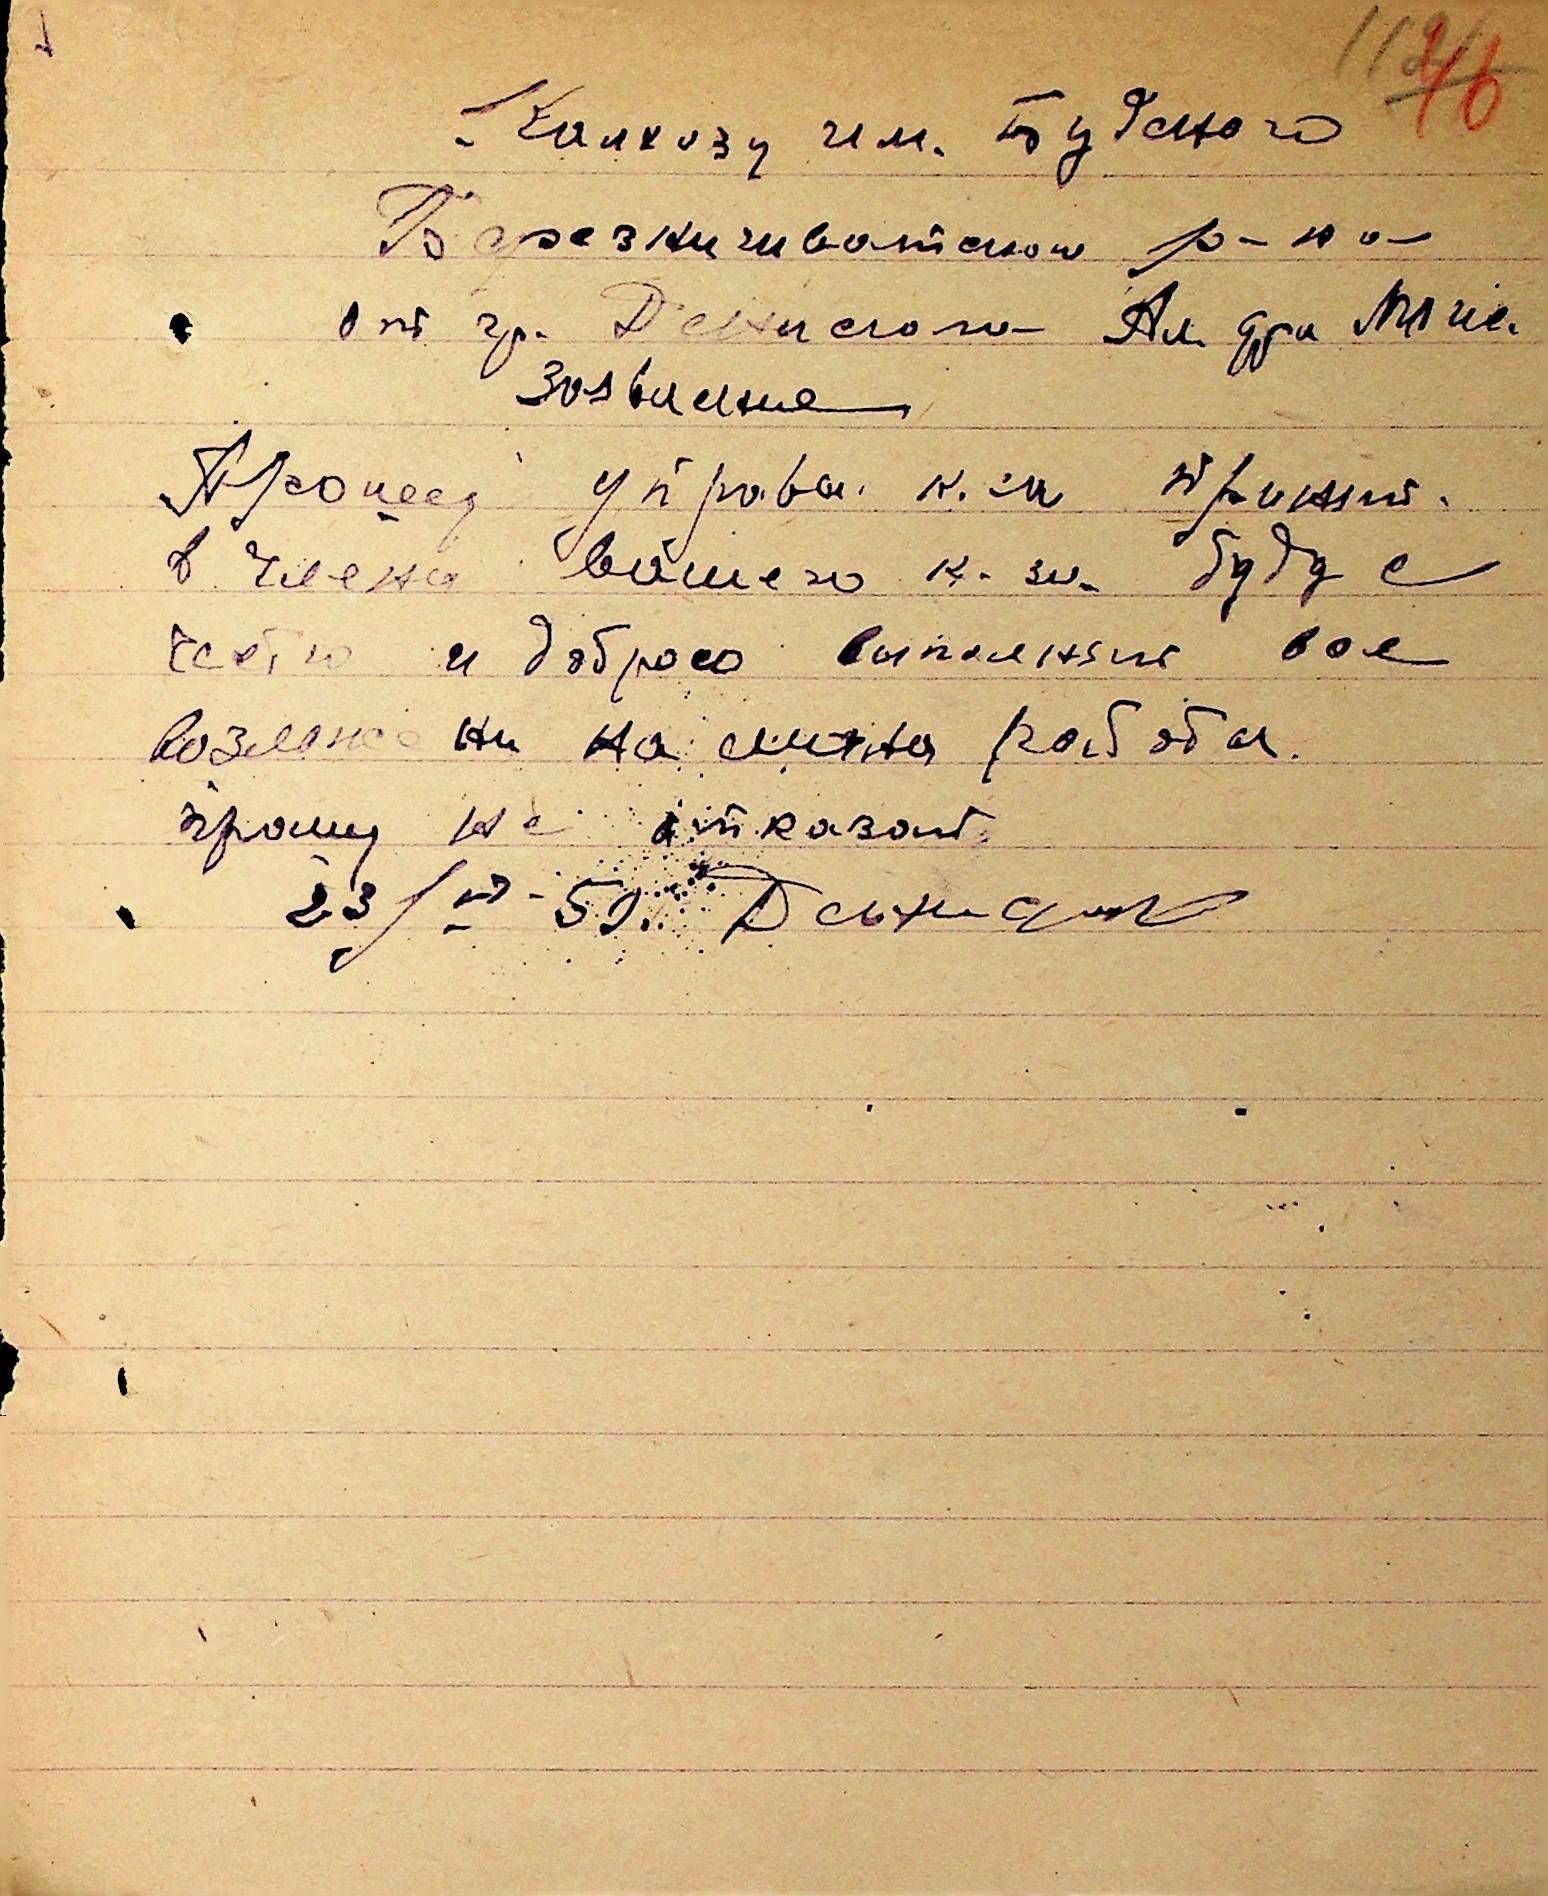 46
Калхозу им. Буденого
Березнигиватского р-на
от гр. Денисова Ал. дра
Заявление
Прошу управл. к.за принят.
в члена вашего к-за. буду с
честю и добросо выполнят вое
возможни на работи.
прошу не отказат.
23/ -50. Денисов